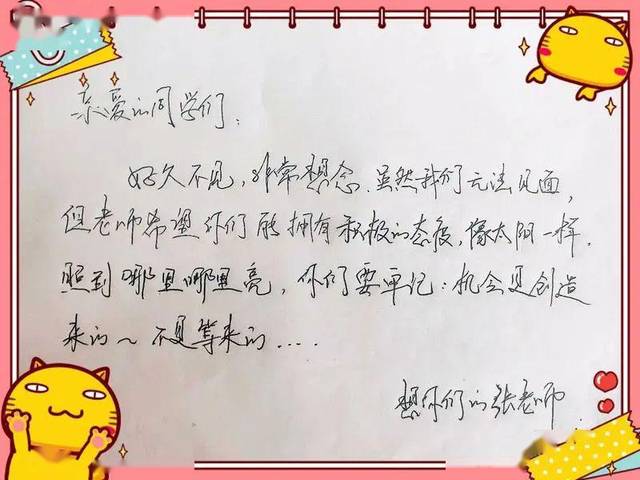 亲爱的同学们:
好久不见,非常想念.虽然我们无法见面,
但老师希望你们能拥有积极的态度,像太阳一样.
照到哪里哪里亮,你们要牢记:机会是创造
来的~不是等来的....
想你们的张老师